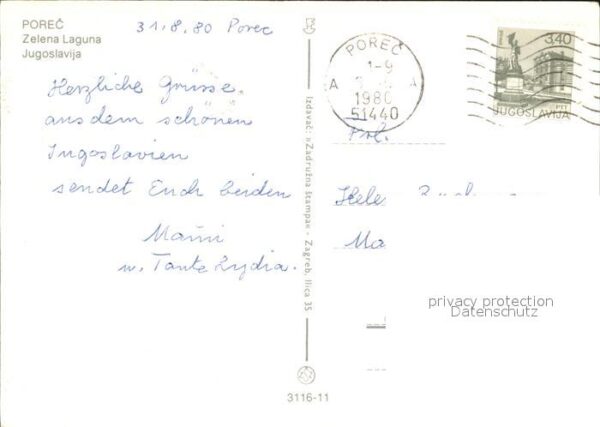 POREČ
Zelena Laguna
Jugoslavija
31.8.80 Porec
Herzliche Grüsse
aus dem schönen
Jugoslavien
sendet Euch beiden
u. Tante Lydia.
Izdavač: »Zadružna štampa« - Zagreb, Ilica 35
3116-11
POREČ
A A
1-9
1980
51440
3,40
JUGOSLAVIJA
Frl.
Hele
Ma
privacy protection
Datenschutz